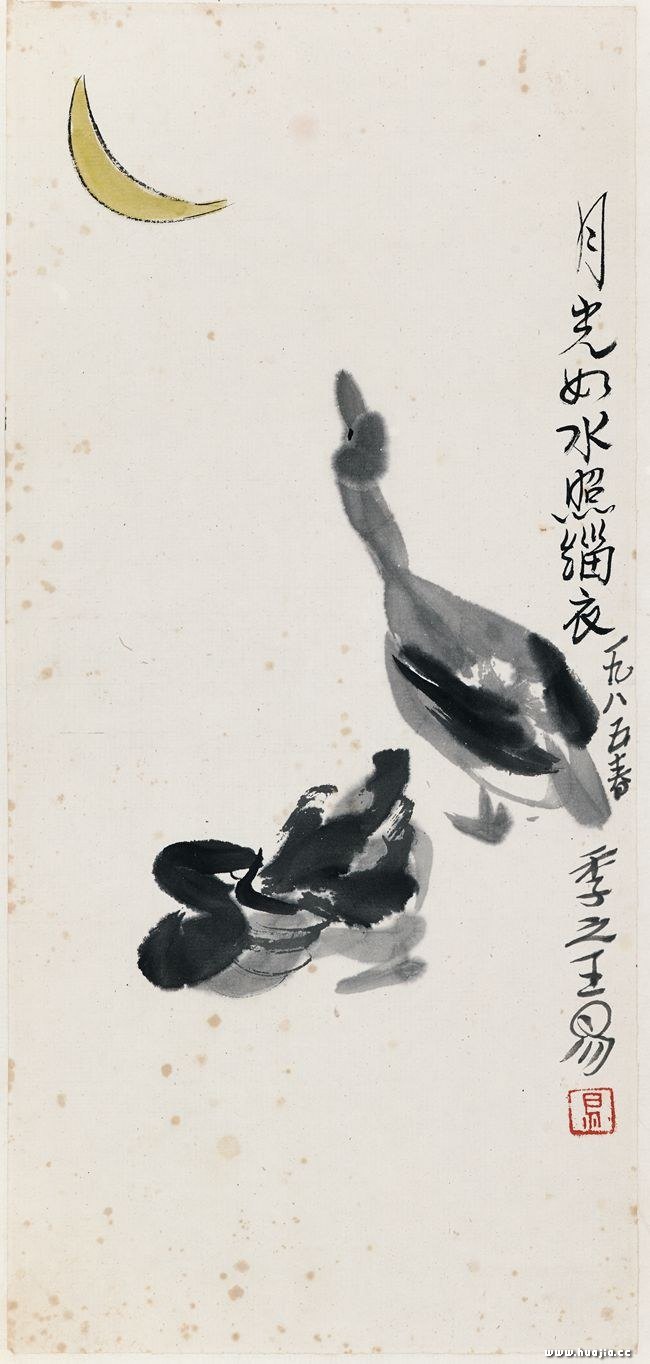 月光如水照缁衣
一九八五春
季之王易
易
www.huajia.cc